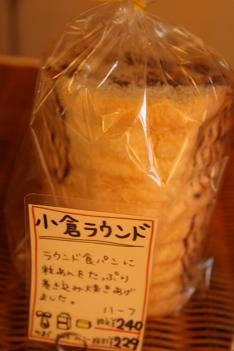 小倉ラウンド
ラウンド食パンに
粒あんをたっぷり
巻き込み焼きあげ
ました。
ハーフ
税込¥240
¥229